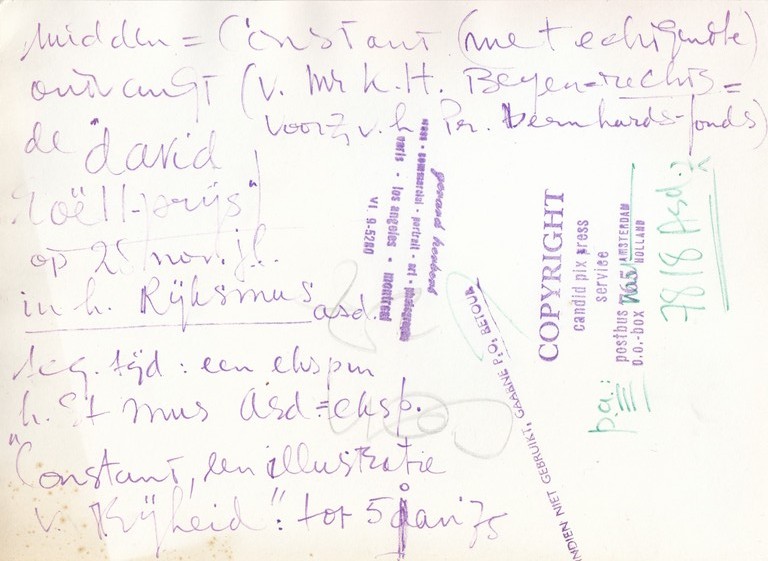 midden = Constant (met echtgenote)
ontvangt (v. Mr K.H. Beyen = rechts =
voorz. v. h. Pr. Bernhards-fonds)
de "david
Roëll-prijs"
op 25 nov. jl.
in h. Rijksmus asd.
teg. tijd: een ekspn
h. St mus asd = eksp.
"Constant, een illustratie
v. Vrijheid": tot 5 jan '75
gerard
- commercial - portrait - art - photography
paris - los angeles - montreal
VI 9-5280
COPYRIGHT
candid pix press
service
postbus AMSTERDAM
p.o.-box HOLLAND
p.a.:
7818 Asd.
INDIEN NIET GEBRUIKT, GAARNE P.O. RETOUR